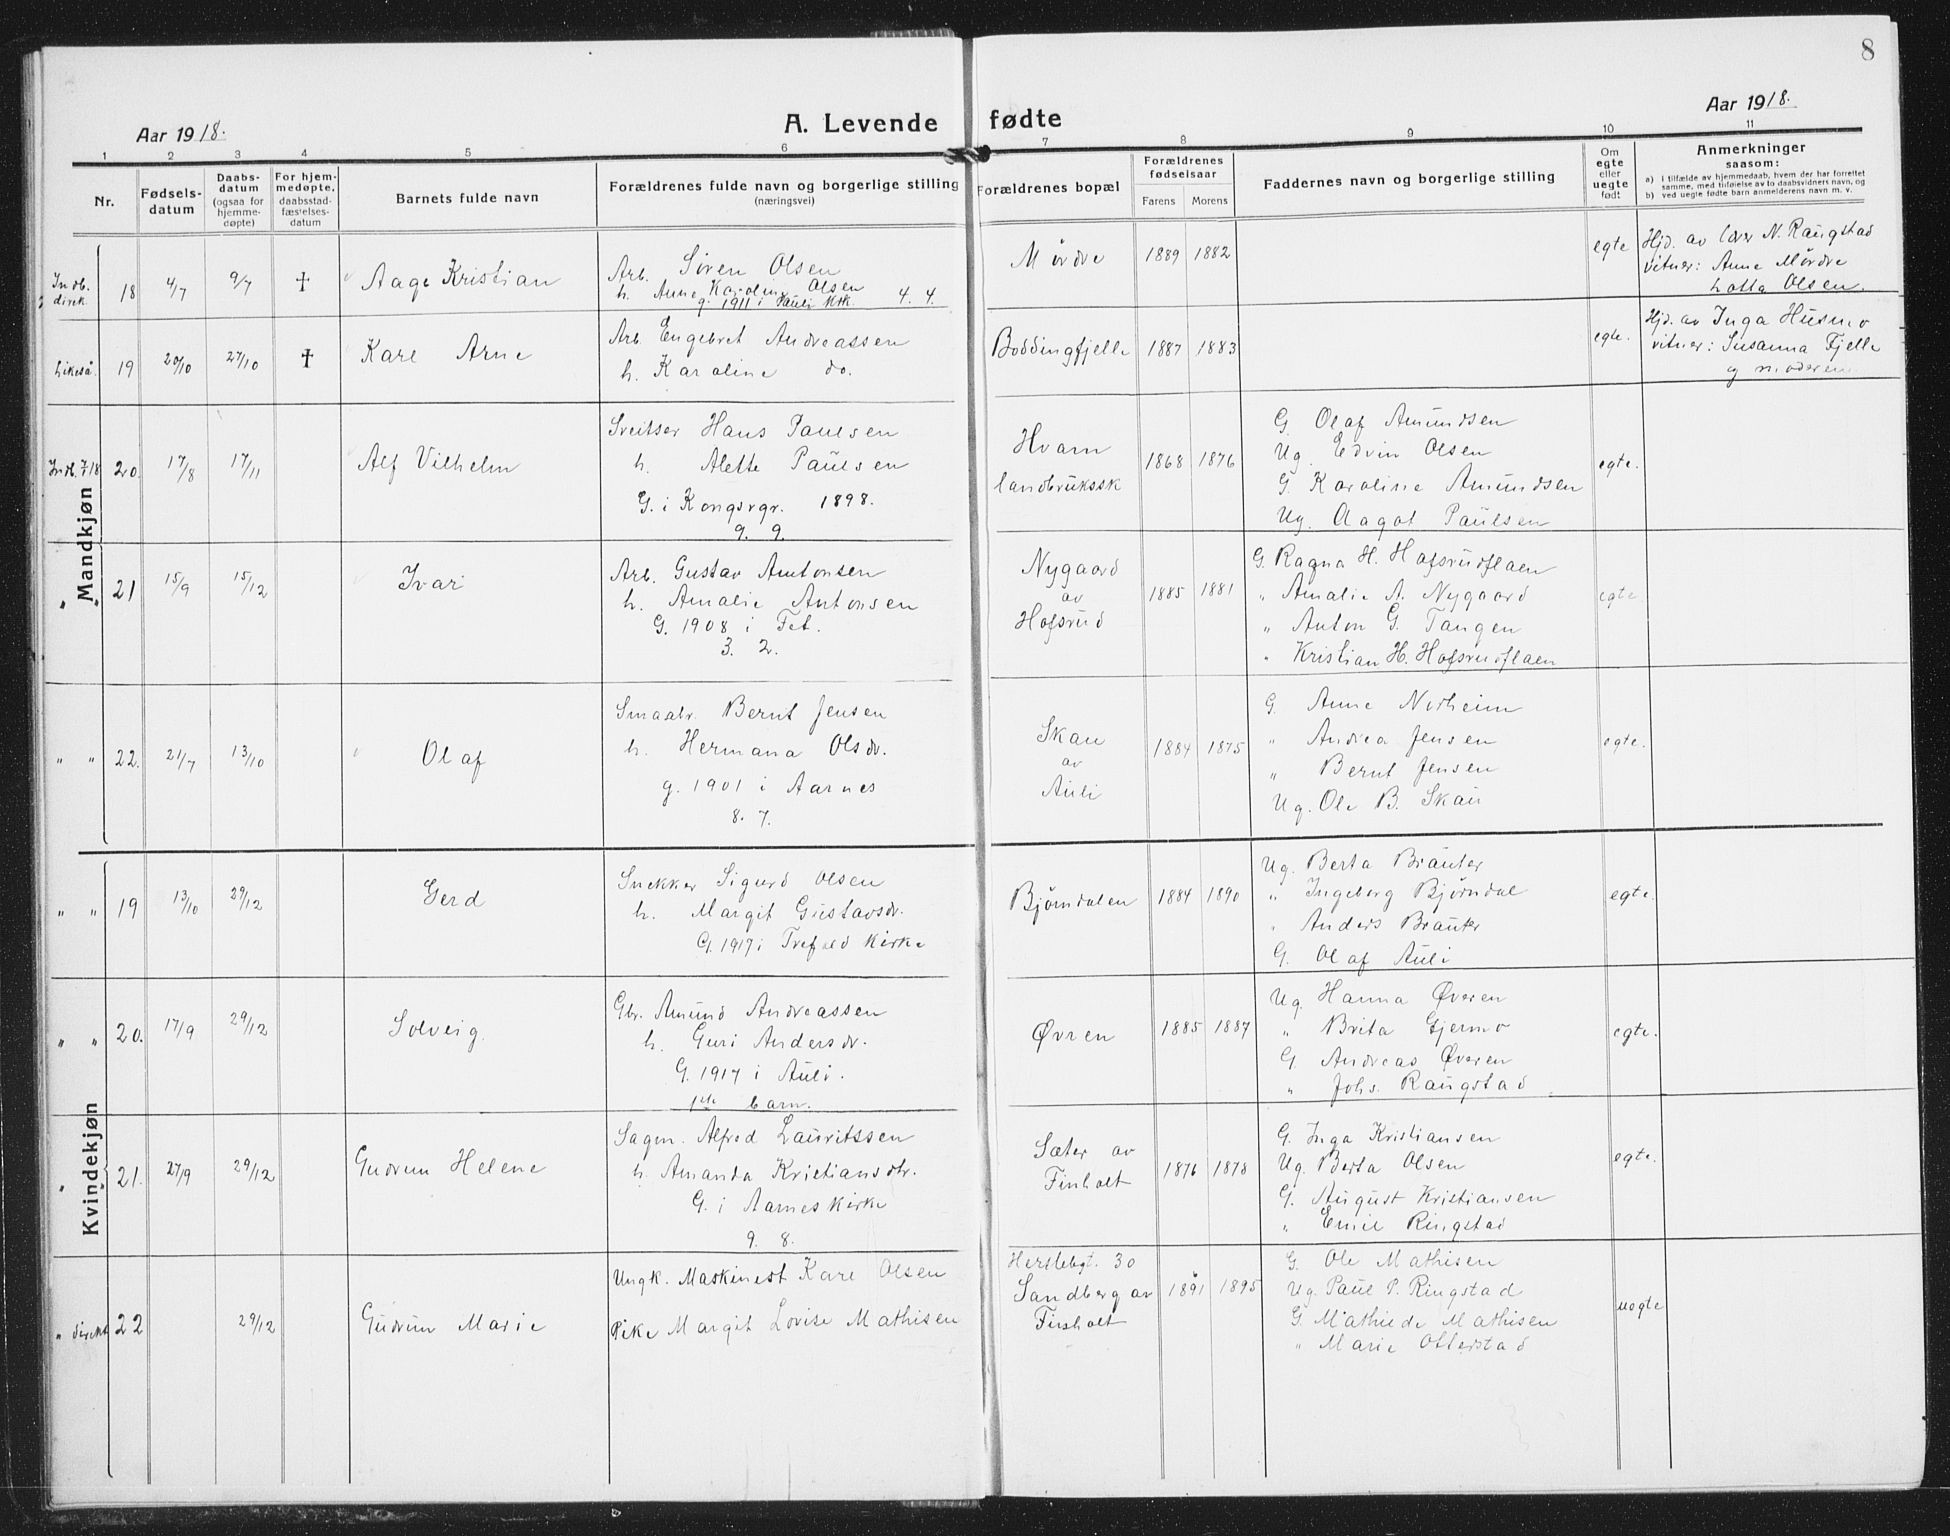 8
Aar 1918.
A. Levende fødte
Aar 1918.
1 2 3 4 5 6 7 8 9 10 11
Nr.
Fødselsdatum
Daabsdatum (ogsaa for hjemmedøpte)
For hjemmedøpte, daabsstadfæstelsesdatum
Barnets fulde navn
Forældrenes fulde navn og borgerlige stilling (næringsvei)
Forældrenes bopæl
Forældrenes fødselsaar
Farens Morens
Faddernes navn og borgerlige stilling
Om egte eller uegte født
Anmerkninger
saasom:
a) I tilfælde av hjemmedaab, hvem der har forrettet samme, med tilføielse av to daabsvidners navn, og
b) ved uegte fødte barn anmelderens navn m. v.
Mandkjøn
Indb. direk. 18 4/7 9/7 † Aage Kristian
Arb. Søren Olsen
h. Anne Karoline Olsen
g. 1911 i Auli Krk 4. 4.
Mørdre 1889 1882 egte
Hjd. av lærer N. Raugstad
vitner: Anne Mørdre
Lotta Olsen.
Likeså. 19 20/10 27/10 † Karl Arne
Arb. Engebret Andreassen
h. Karoline do.
Boddingfjelle 1887 1883 egte.
Hjd. av Inga Husmo
vitner: Susanna Fjelle
og moderen
20. 17/8 17/11 Alf Vilhelm
Sveitser Hans Paulsen
h. Alette Paulsen
G. i Kongsvgr. 1898.
9. 9.
Hvam
landbrukssk 1868 1876
G. Olaf Amundsen
Ug. Edvin Olsen
G. Karoline Amundsen
Ug. Aagot Paulsen
egte.
" " 21 15/9 15/12 Ivar
Arb. Gustav Antonsen
h. Amalie Antonsen
G. 1908 i Fet.
3. 2.
Nygaard
av
Hofsrud 1885 1881
G. Ragna H. Hofsrudflaen
" Amalie A. Nygaard
" Anton G. Tangen
" Kristian H. Hofsrudflaen
egte
" " 22. 21/7 13/10 Olaf
Smaabr. Bernt Jensen
h. Hermana Olsdr.
g. 1901 i Aarnes
8. 7.
Skau
av
Auli 1884 1875
G. Anne Norheim
" Andrea Jensen
" Bernt Jensen
Ug. Ole B. Skau
egte.
Kvindekjøn
" " 19 13/10 29/12 Gerd
Snekker Sigurd Olsen
h. Margit Gustavsdr.
G. 1917 i Trefold Kirke
Bjørndalen 1884 1890
Ug. Berta Brauter
" Ingeborg Bjørndal
" Anders Brauter
G. Olaf Auli
egte.
" " 20. 17/9 29/12 Solveig
Gbr. Amund Andreassen
h. Guri Andersdr.
G. 1917 i Auli.
1ste barn.
Øvren 1885 1887
Ug. Hanna Øveren
" Brita Gjermo
G. Andreas Øveren
" Johs. Raugstad
egte.
" " 21. 27/9 29/12 Gudrun Helene
Sagm. Alfred Lauritssen
h. Amanda Kristiansdtr.
G. i Aarnes Kirke
9. 8.
Sæter av
Finholt 1876 1878
G. Inga Kristiansen
Ug. Berta Olsen
G. August Kristiansen
" Emil Ringstad
egte.
" direkt 22 29/12 Gudrun Marie
Ungk. Maskinest Karl Olsen
Pike Margit Lovise Mathisen
Herslebgt. 30
Sandberg av
Finholt 1891 6 1895
G. Ole Mathisen
Ug. Paul P. Ringstad
G. Mathilde Mathisen
" Marie Otterstad
uegte